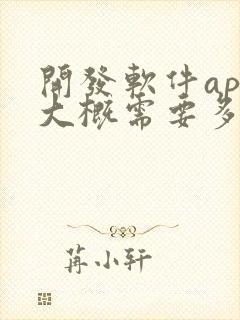 開發軟件ap
大概需要多
苒小轩